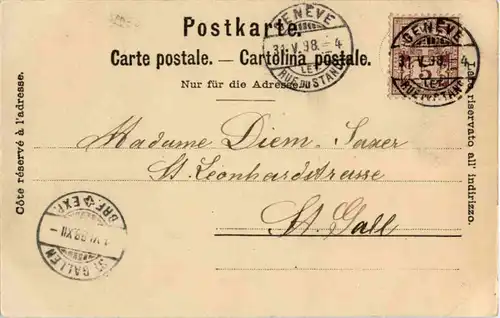 Postkarte.
Carte postale. — Cartolina postale.
Nur für die Adresse.
Côte réservé à l'adresse.
Lato riservato all' indirizzo.
GENÈVE
31.V.98.–4
LET.
RUE DU STAND
GENÈVE
31.V.98.–4
LET.
RUE DU STAND
5
Madame Diem-Saxer
St. Leonhardstrasse
St. Gall
ST. GALLEN
1.VI.98.XII
BRF. EXP.